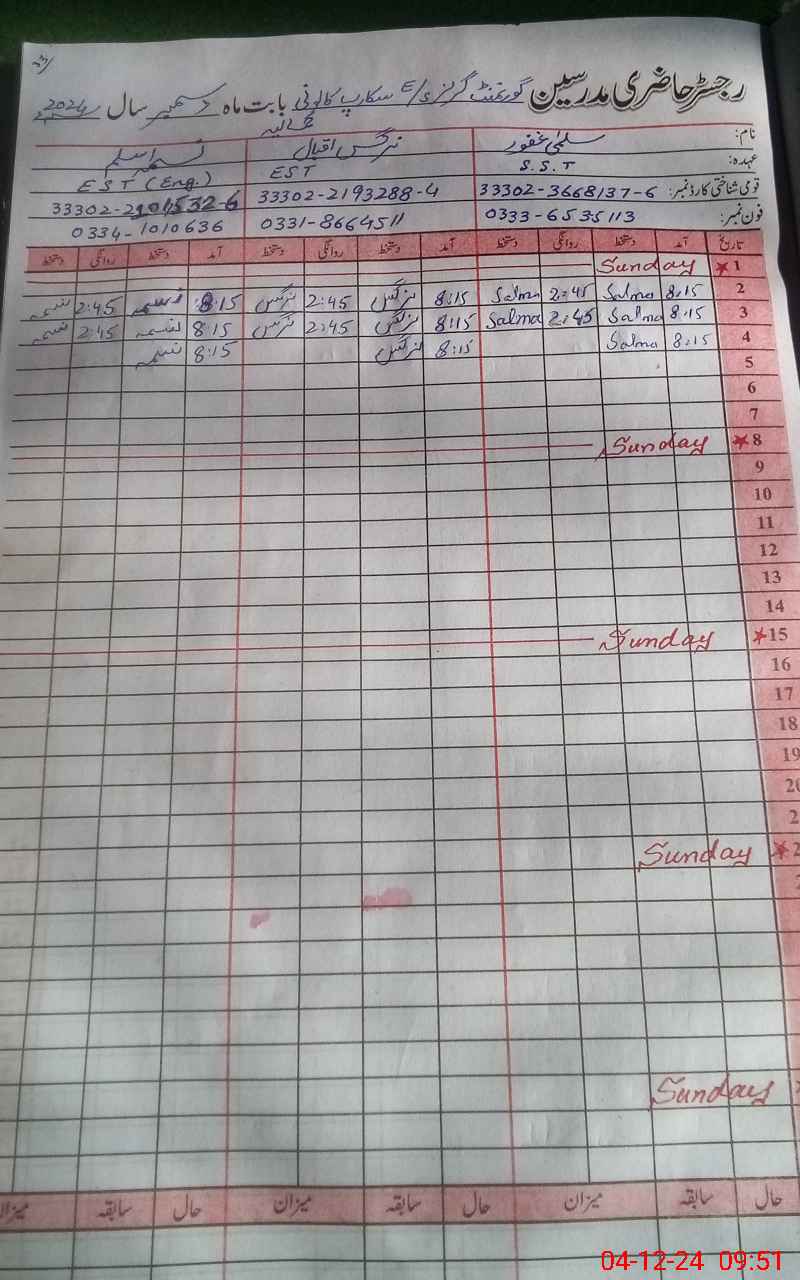 33/
رجسٹر حاضری مدرسین گورنمنٹ گرلز ای/ای سکارپ کالونی بابت ماہ دسمبر سال 2024
نام: سلمیٰ غفور نرگس اقبال نسیم اسلم
عہدہ: S.S.T EST EST (Eng.)
قومی شناختی کارڈ نمبر: 33302-3668137-6 33302-2193288-4
فون نمبر: 0333-6535113 0331-8664511 0334-1010636
تاریخ آمد دستخط روانگی دستخط آمد دستخط روانگی دستخط آمد دستخط روانگی دستخط
★1 Sunday
2 8:15 Salma 2:45 Salma 8:15 نرگس 2:45 نرگس 8:15 نسیمہ 2:45 نسیمہ
3 8:15 Salma 2:45 Salma 8:15 نرگس 2:45 نرگس 8:15 نسیمہ 2:45 نسیمہ
4 8:15 Salma 8:15 نرگس 8:15 نسیمہ
5
6
7
★8 Sunday
9
10
11
12
13
14
★15 Sunday
16
17
18
19
20
2
★2 Sunday
Sunday
حال سابقہ میزان حال سابقہ میزان حال سابقہ میزان
04-12-24 09:51